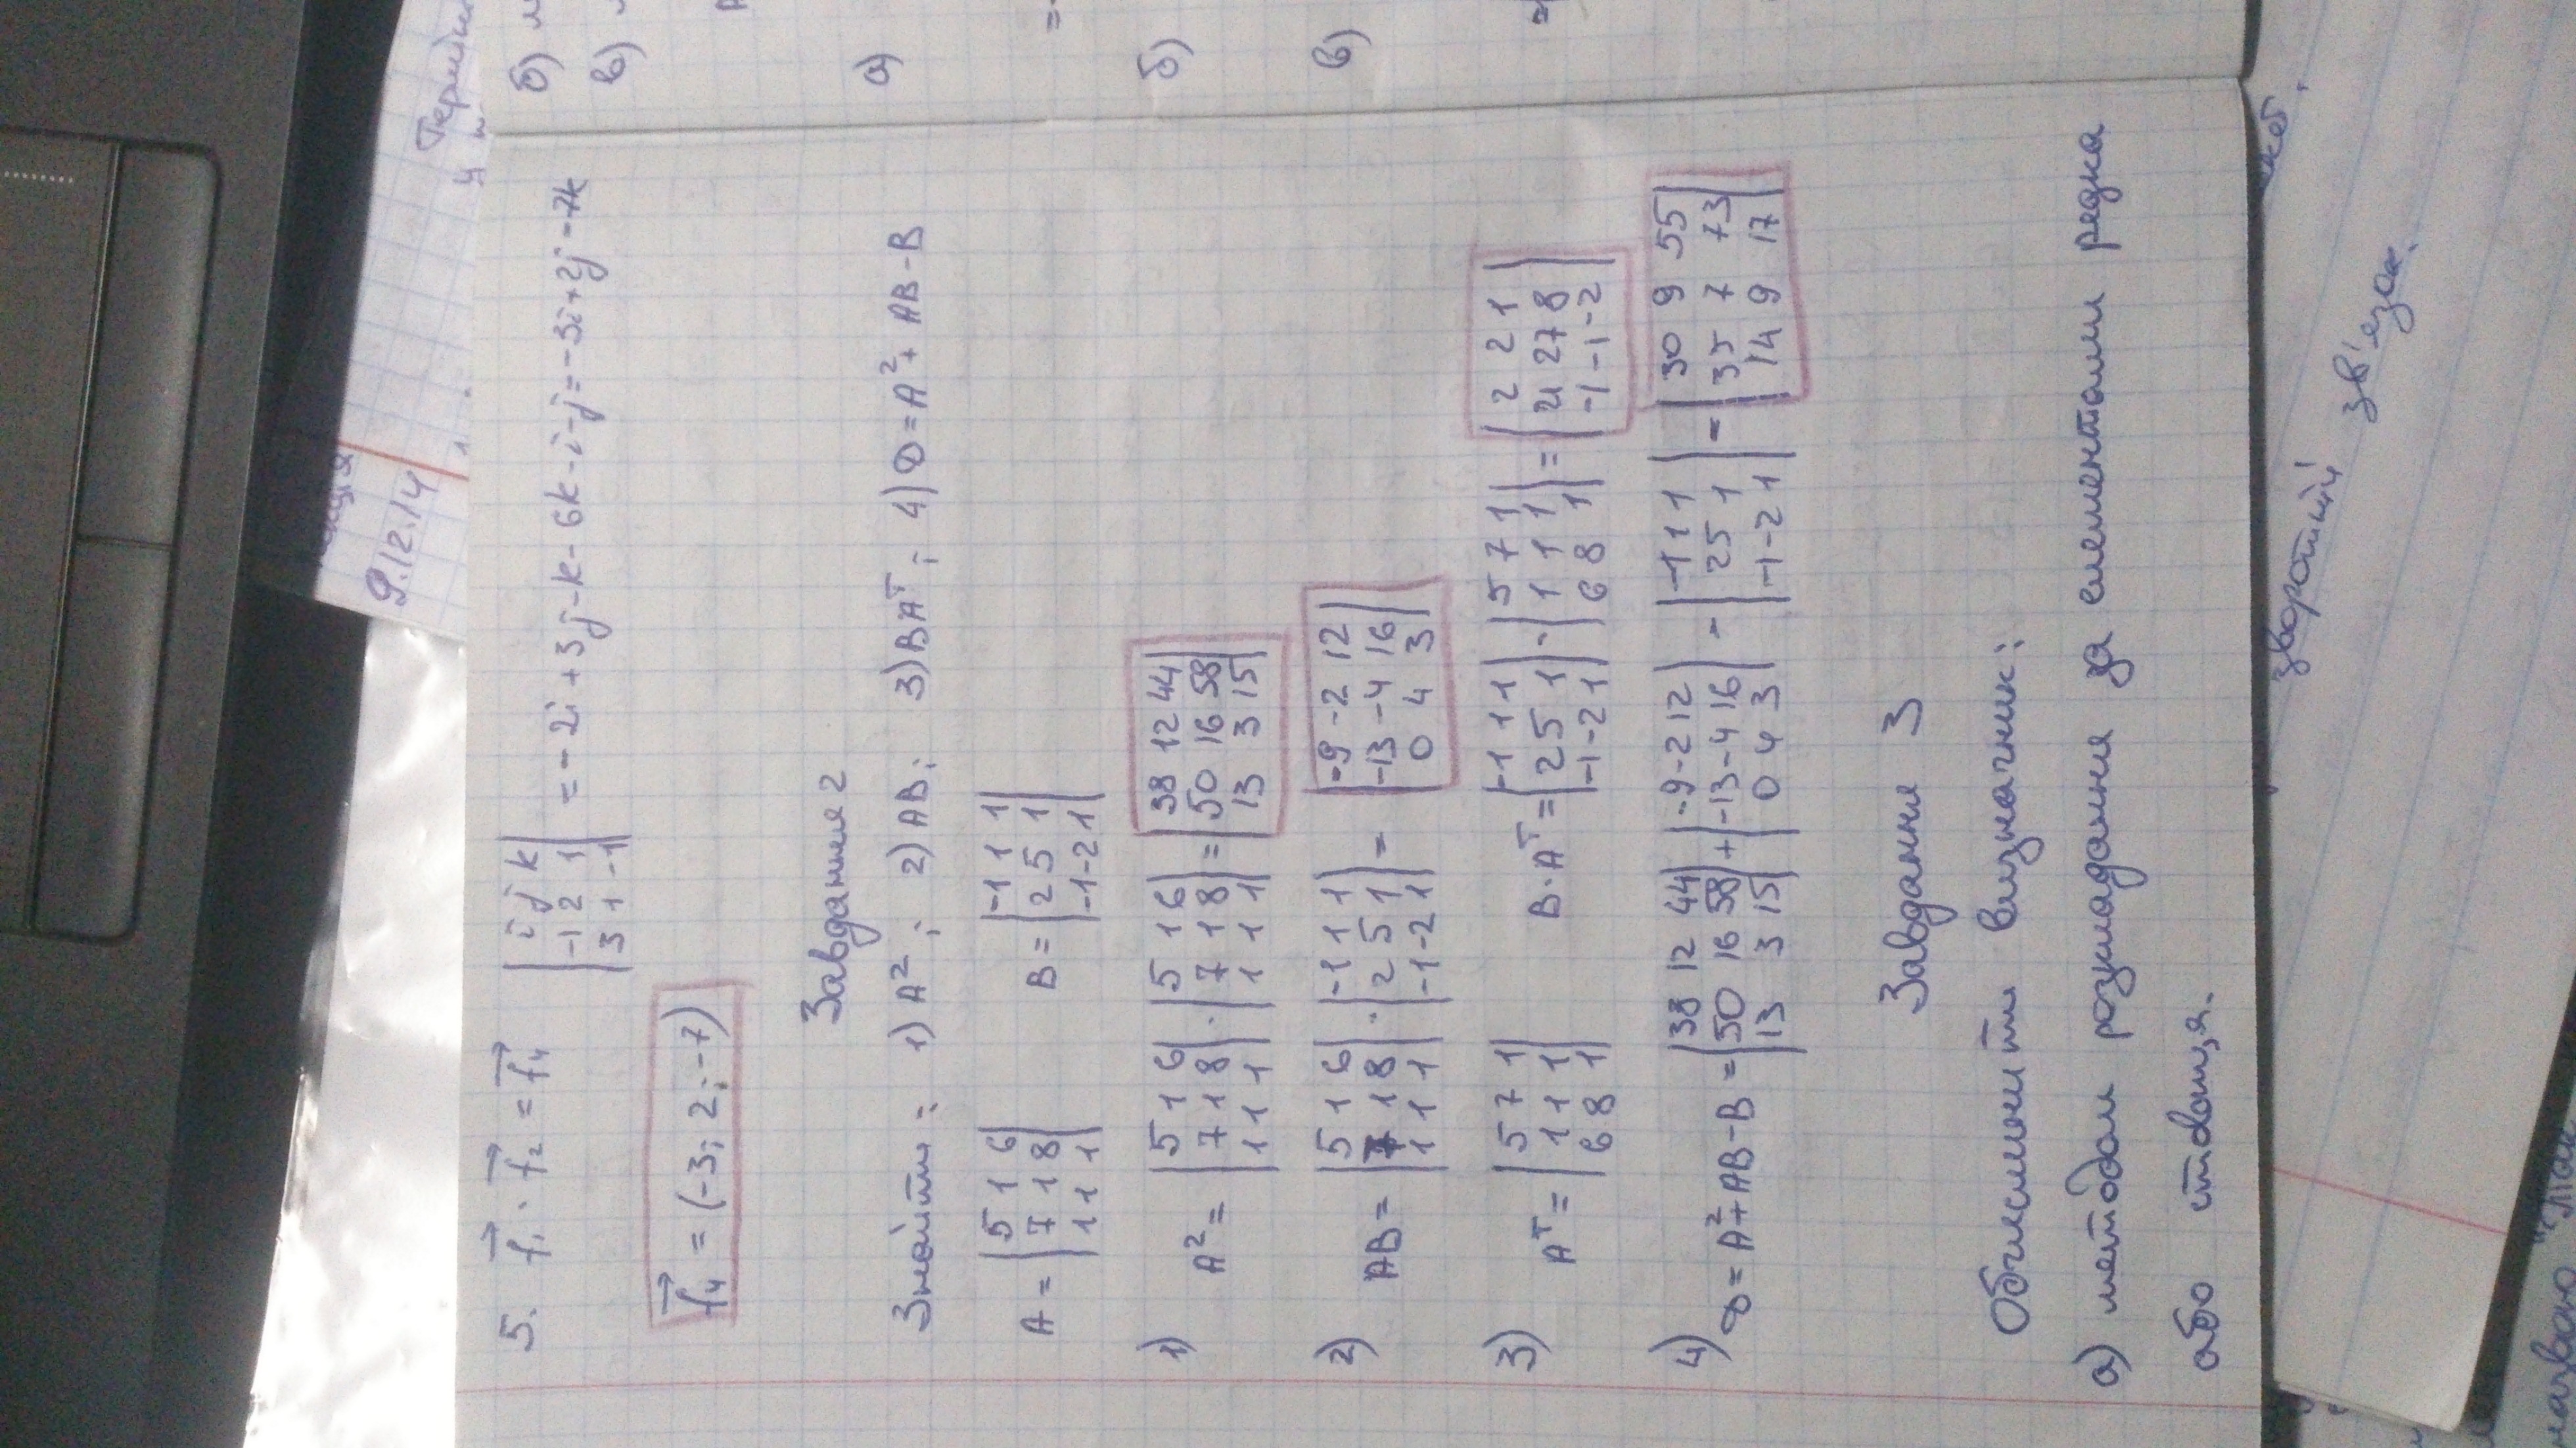 лекція
9.12.14
5. f₁ · f₂ = f₄ | i j k | -1 2 1 | 3 1 -1 | = -2i + 3j - k - 6k - i - j = -3i + 2j - 7k
f₄ = (-3; 2; -7)
Завдання 2
Знайти: 1) A²; 2) AB; 3) BAᵀ; 4) D = A² + AB - B
A = | 5 1 6 | 7 1 8 | 1 1 1 | B = | -1 1 1 | 2 5 1 | -1 -2 1 |
1) A² = | 5 1 6 | 7 1 8 | 1 1 1 | · | 5 1 6 | 7 1 8 | 1 1 1 | = | 38 12 44 | 50 16 58 | 13 3 15 |
2) AB = | 5 1 6 | 7 1 8 | 1 1 1 | · | -1 1 1 | 2 5 1 | -1 -2 1 | = | -9 -2 12 | -13 -4 16 | 0 4 3 |
3) Aᵀ = | 5 7 1 | 1 1 1 | 6 8 1 | B·Aᵀ = | -1 1 1 | 2 5 1 | -1 -2 1 | · | 5 7 1 | 1 1 1 | 6 8 1 | = | 2 2 1 | 21 27 8 | -1 -1 -2 |
4) D = A² + AB - B = | 38 12 44 | 50 16 58 | 13 3 15 | + | -9 -2 12 | -13 -4 16 | 0 4 3 | - | -1 1 1 | 2 5 1 | -1 -2 1 | = | 30 9 55 | 35 7 73 | 14 9 17 |
Завдання 3
Обчислити визначник:
а) методом розкладання за елементами рядка
або стовпця.
б)
в)
а)
б)
в)
зворотній зв'язок.
назвою "Так